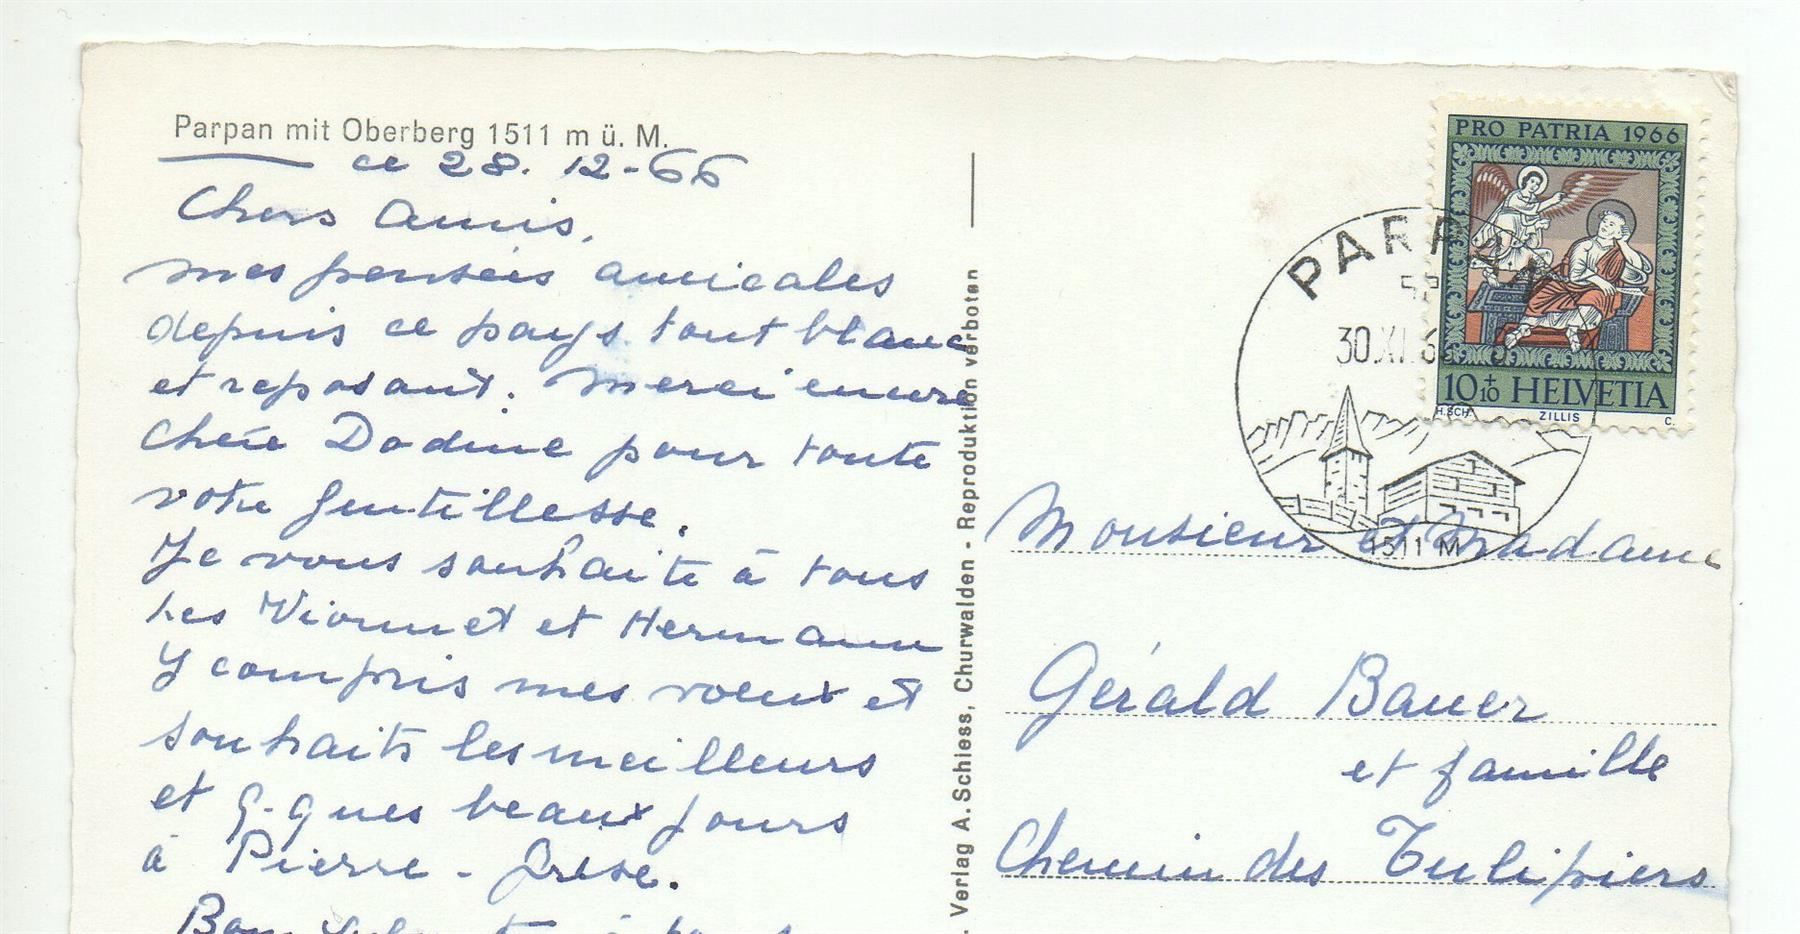 Parpan mit Oberberg 1511 m ü. M.
ce 28. 12-66
Chers Amis,
mes pensées amicales
depuis ce pays tout blanc
et reposant. Merci encore
chère Dodine pour toute
votre gentillesse.
Je vous souhaite à tous
les Vionnet et Hermann
y compris mes voeux et
souhaits les meilleurs
et q.ques beaux jours
à Pierre-Grise.
Verlag A. Schiess, Churwalden - Reproduktion verboten
PRO PATRIA 1966
10+10 HELVETIA
H.SCH. ZILLIS C.
PARPAN
30.XI
1511 M
Monsieur et Madame
Gérald Bauer
et famille
Chemin des Tulipiers